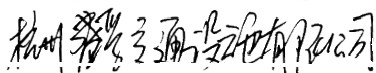 杭州交通设施有限公司